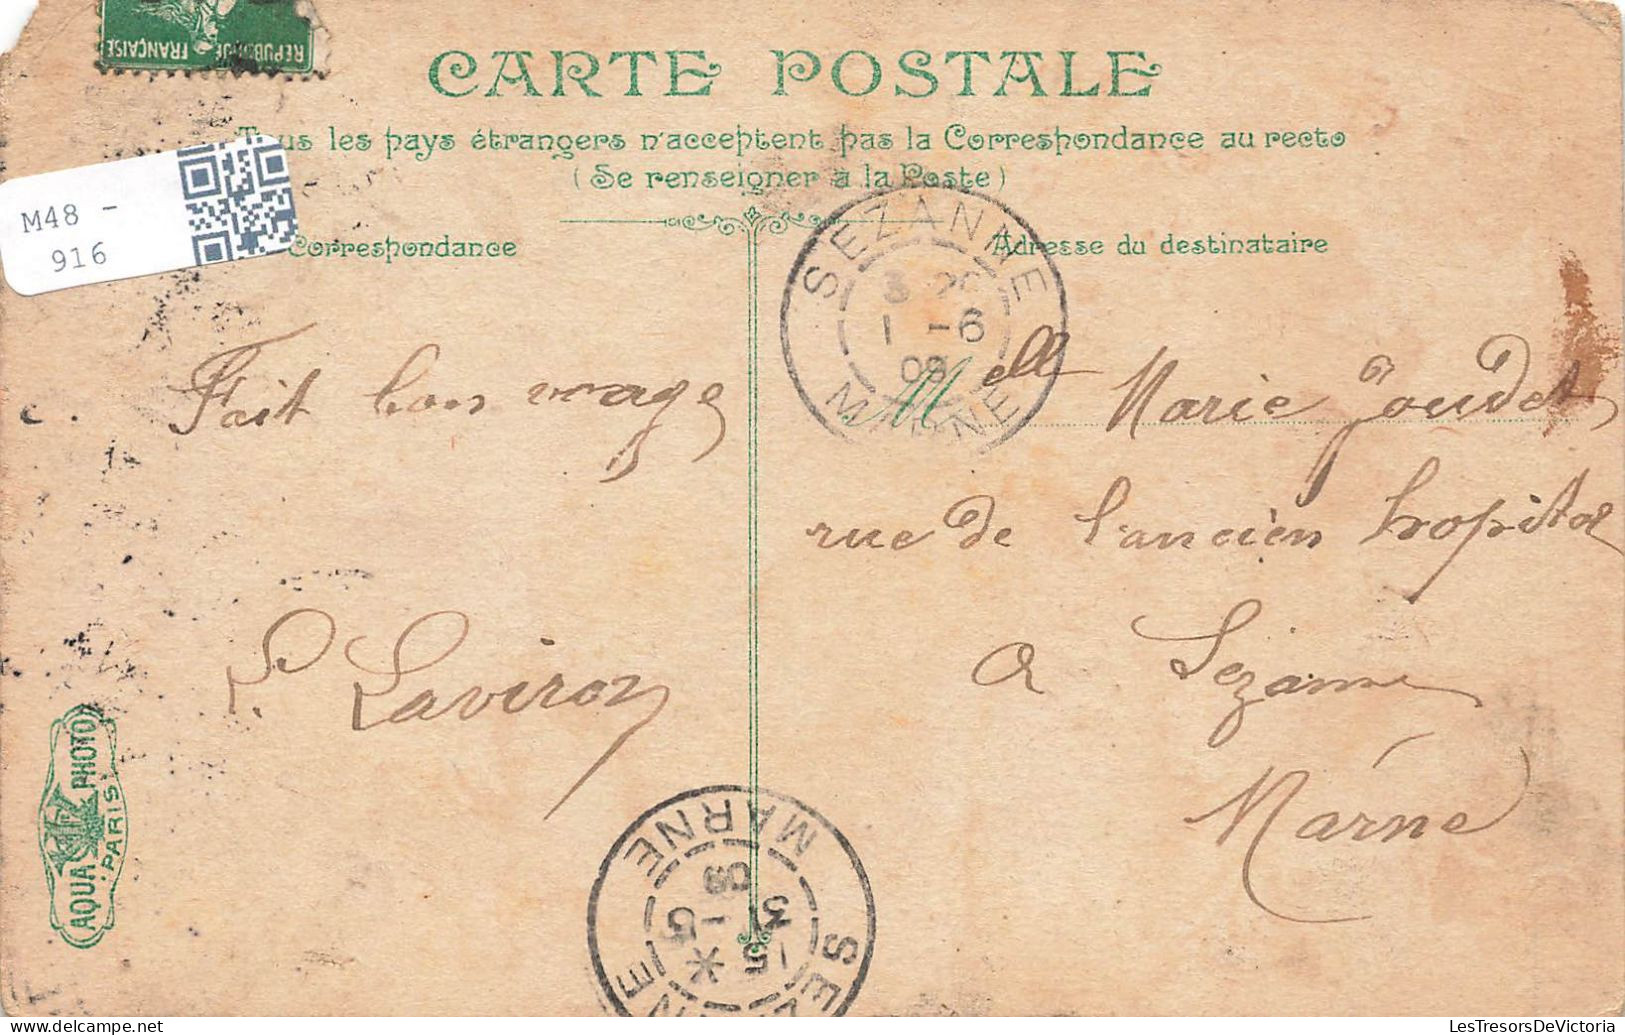 REPUBLIQUE FRANÇAISE
CARTE POSTALE
Tous les pays étrangers n'acceptent pas la Correspondance au recto
(Se renseigner à la Poste)
M48 -
916
Correspondance
Adresse du destinataire
SEZANNE
1 -6
09
MARNE
Fait bon voyage
L. Laviron
Melle Marie Goudet
rue de l'ancien hopital
a Sezanne
Marne
AQUA PHOTO
PARIS
SEZANNE
MARNE
LesTresorsDeVictoria